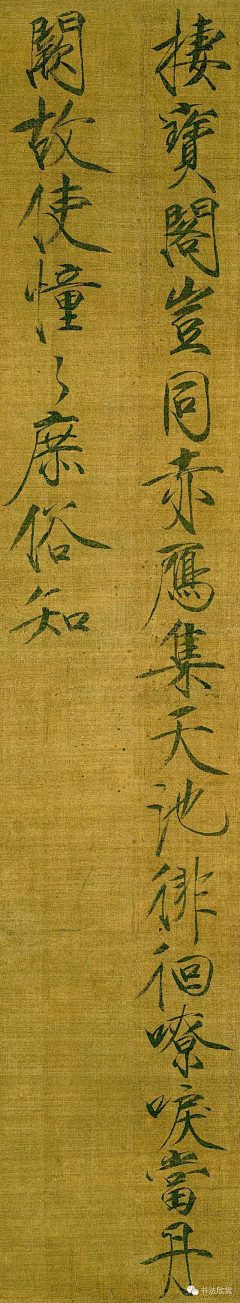 棲寶閣豈同赤鴈集天池徘徊嘹唳當丹
闕故使憧々庶俗知
书法欣赏